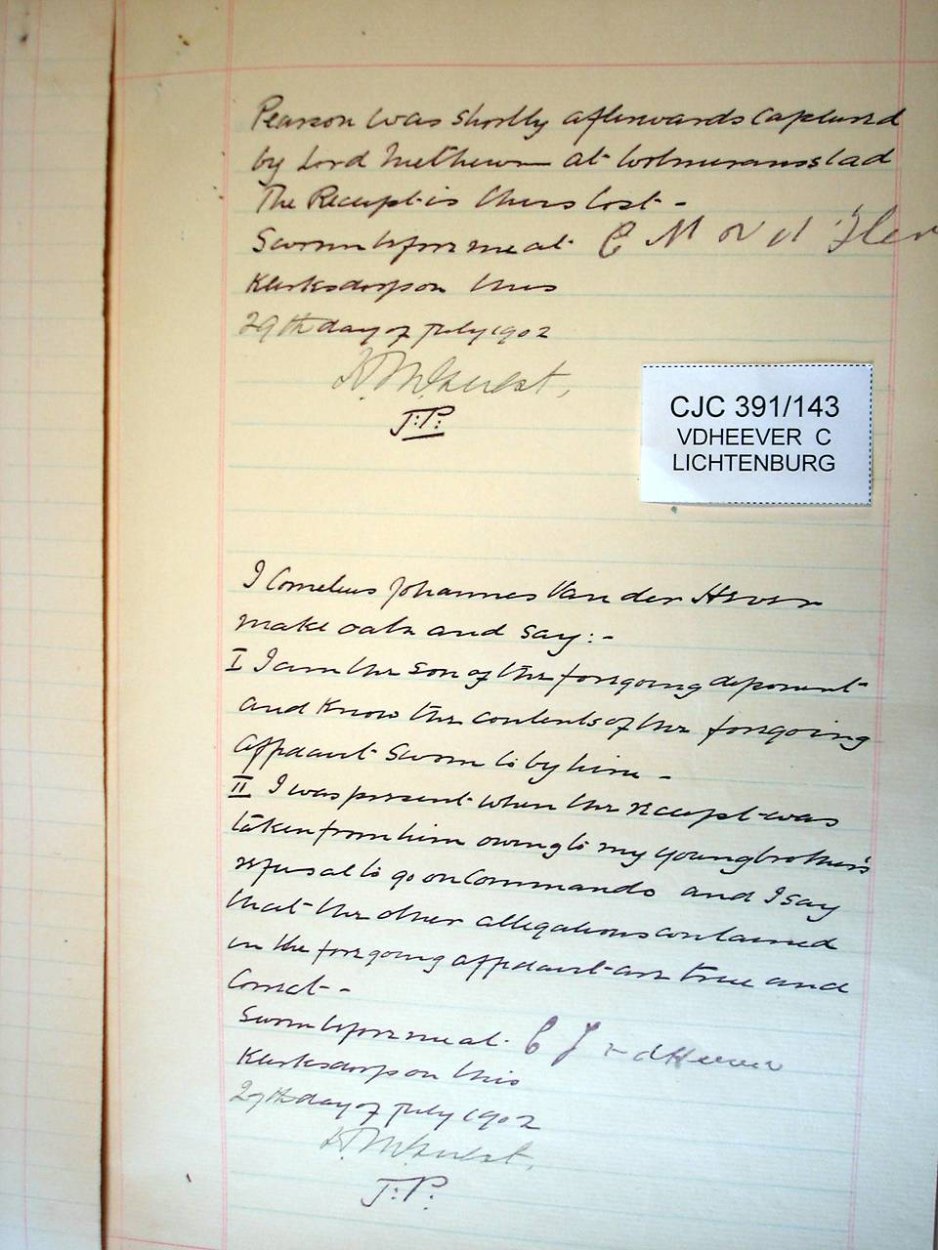 Pearson was shortly afterwards captured
by Lord Methuen at Wolmaransstad
The Receipt is thus lost -
Sworn before me at C M v d
Klerksdorp on this
29th day of July 1902
H. M. Guest,
J:P:
CJC 391/143
VDHEEVER C
LICHTENBURG
I Cornelius Johannes Van der Hever
make oath and say:-
I I am the son of the foregoing deponent
and know the contents of the foregoing
affidavit sworn to by him -
II I was present when the receipt was
taken from him owing to my young brother's
refusal to go on Commando and I say
that the other allegations contained
in the foregoing affidavit are true and
Correct -
Sworn before me at C J v d Heever
Klerksdorp on this
29th day of July 1902
H. M. Guest,
J:P: